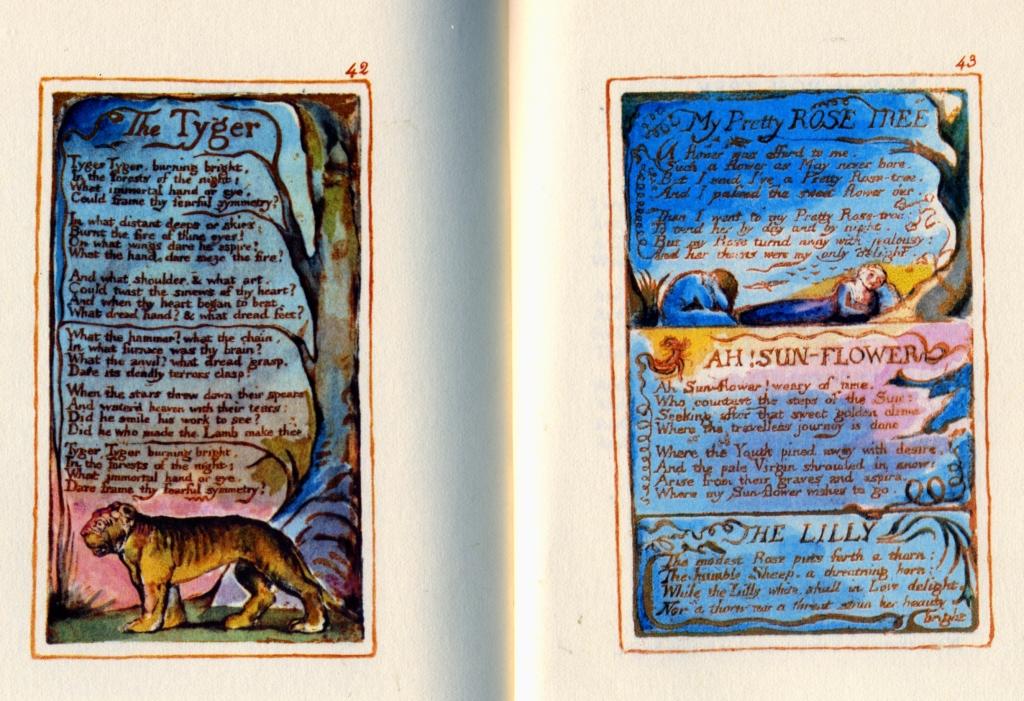 42
The Tyger
Tyger Tyger, burning bright,
In the forests of the night;
What immortal hand or eye,
Could frame thy fearful symmetry?
In what distant deeps or skies,
Burnt the fire of thine eyes!
On what wings dare he aspire?
What the hand, dare sieze the fire?
And what shoulder, & what art,
Could twist the sinews of thy heart?
And when thy heart began to beat,
What dread hand? & what dread feet?
What the hammer? what the chain,
In what furnace was thy brain?
What the anvil? what dread grasp,
Dare its deadly terrors clasp!
When the stars threw down their spears
And water'd heaven with their tears:
Did he smile his work to see?
Did he who made the Lamb make thee
Tyger Tyger burning bright,
In the forests of the night;
What immortal hand or eye,
Dare frame thy fearful symmetry?
43
My Pretty ROSE TREE
A flower was offerd to me:
Such a flower as May never bore.
But I said I've a Pretty Rose-tree,
And I passed the sweet flower o'er.
Then I went to my Pretty Rose-tree:
To tend her by day and by night.
But my Rose turnd away with jealousy:
And her thorns were my only delight.
AH! SUN-FLOWER
Ah Sun-flower! weary of time,
Who countest the steps of the Sun:
Seeking after that sweet golden clime
Where the travellers journey is done
Where the Youth pined away with desire,
And the pale Virgin shrouded in snow:
Arise from their graves and aspire,
Where my Sun-flower wishes to go.
THE LILLY
The modest Rose puts forth a thorn:
The humble Sheep, a threatning horn:
While the Lilly white, shall in Love delight,
Nor a thorn nor a threat stain her beauty
bright